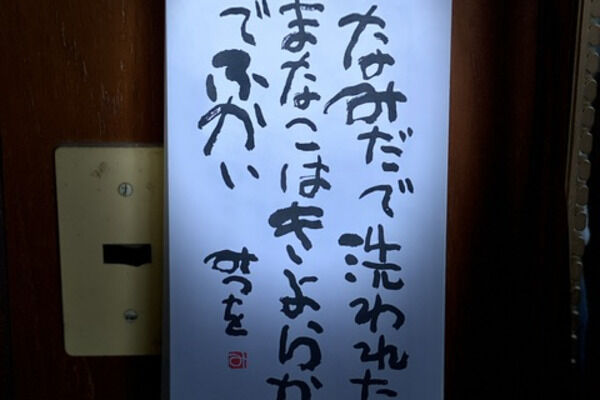 なみだで洗われた
まなこはきよらか
でふかい
みつを